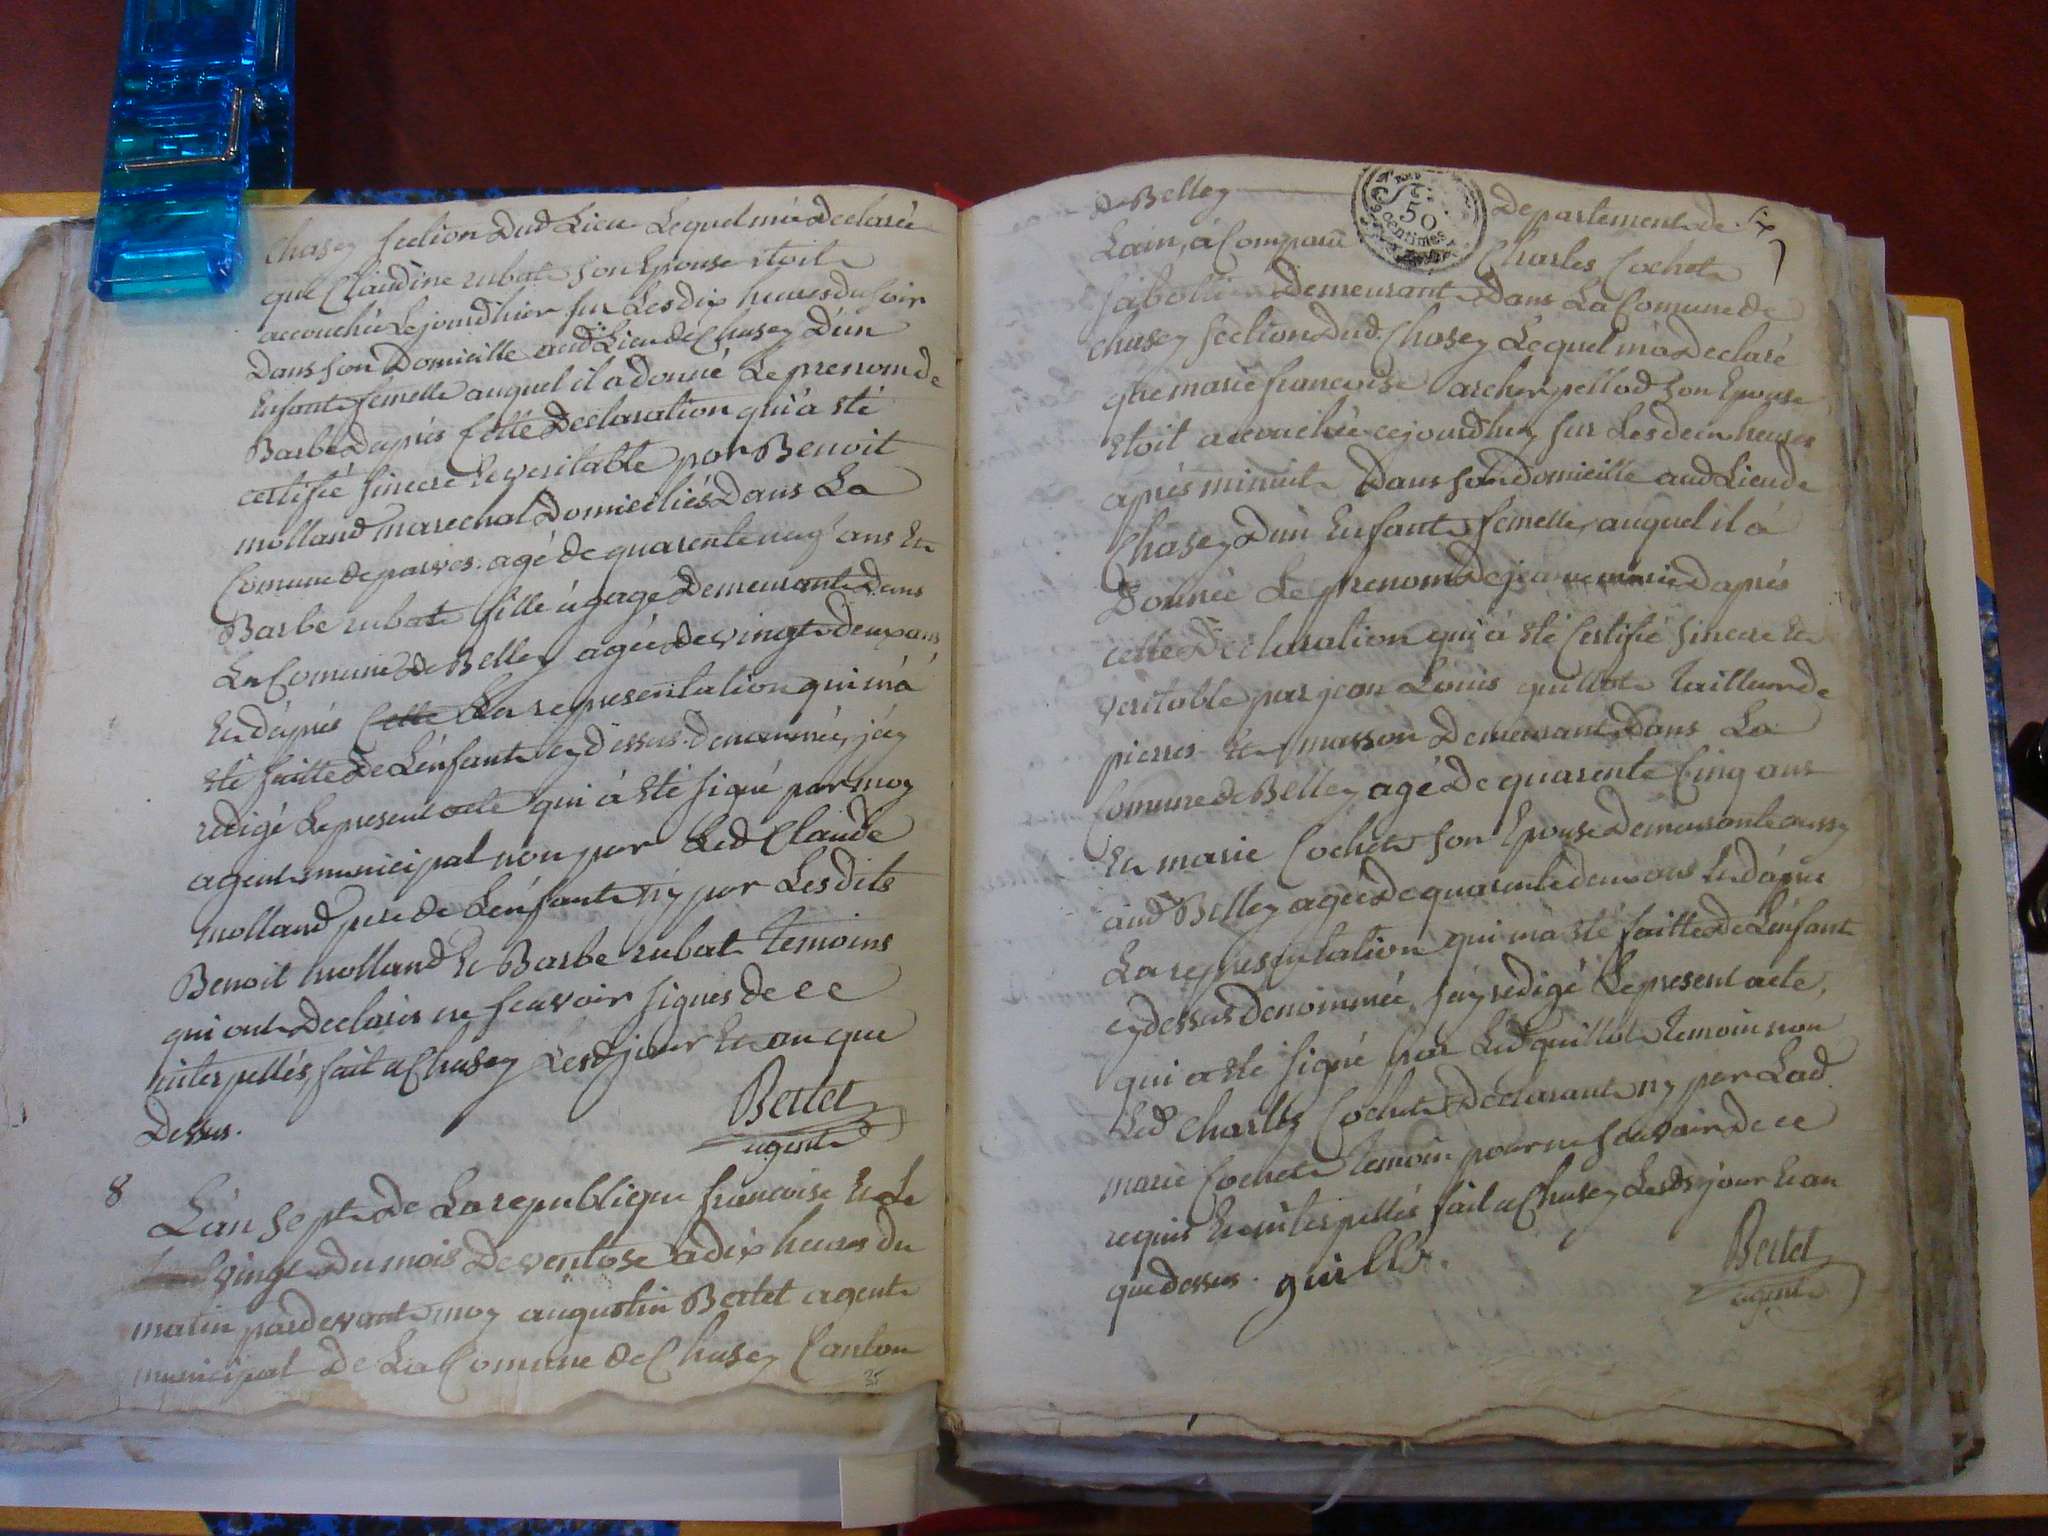 Chasey section dud Lieu Lequel m'a declaré
que Claudine rubat son Epouse étoit
accouchée Lejourdhier sur Les dix heures du soir
dans son Domicille aud Lieu de Chasey D'un
Enfant femelle auquel il a donné Le prenom de
Barbe D'après Cette Declaration qui a sté
certifié sincere Et veritable par Benoit
molland marechal Domiciliés Dans La
Comune de parves agé de quarente neuf ans Et
Barbe rubat fille à gage Demeurante Dans
La Comune de Belley agée de vingt deux ans
Et d'après Cette La representation qui m'a
sté faitte de L'enfant cy dessus denommée, j'ay
redigé Le present acte qui a sté signé par moy
agent municipal non par Led Claude
molland pere de L'enfant ny par Les dits
Benoit molland Et Barbe rubat temoins
qui ont Declarés ne scavoir signes de ce
interpellés, fait a Chasey Lesd jour Et an que
Dessus.
Bertet
agent
8
L'an sept de La republique francoise Et Le
vingt du mois de ventose a dix heures du
matin pardevant moy augustin Bertet agent
municipal de La Comune de Chasey Canton
35
de Belley
Departement de
50
Centimes
L'ain, a Comparu Charles Cochet
demeurant Dans La Comune de
Chasey section dud. Chasey Lequel m'a Declaré
que marie francoise archer pellod son Epouse
étoit accouchée cejourdhuy sur Les deux heures
après minuit Dans son domicille aud Lieu de
Chasey D'un Enfant femelle, auquel il a
Donnée Le prenom de jeanne marie D'après
cette Declaration qui a sté Certifié sincere Et
veritable par jean Louis guillot tailleur de
pierres Et masson Demeurant Dans La
Comune de Belley agé De quarente Cinq ans
Et marie Cochet son Epouse Demeurante aussy
aud Belley agée De quarente deux ans Et d'après
La representation qui m'a sté faitte de L'enfant
cy dessus denommée, j'ay redigé Le present acte,
qui a sté signé par Led guillot temoin non
Led Charles Cochet Declarant ny par Lad
marie Cochet temoin pour ne scavoir de ce
requis Et interpellés fait a Chasey Lesds jour Et an
que dessus. guillot.
Bertet
agent